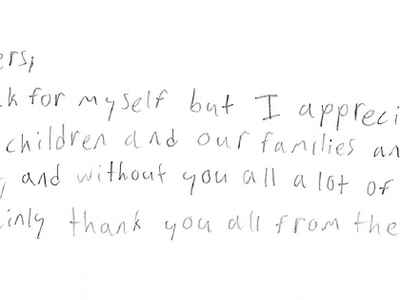 ers,
k for myself but I appreci
children and our families an
, and without you all a lot of
inly thank you all from the